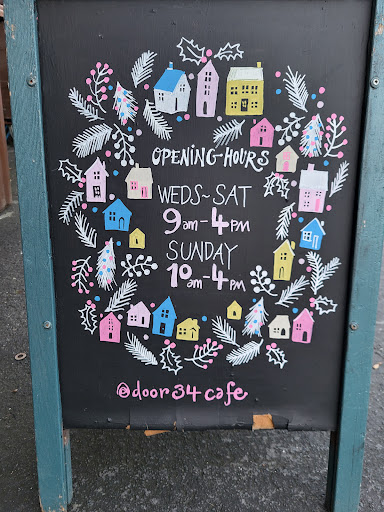 OPENING-HOURS
WEDS~SAT
9am-4PM
SUNDAY
10am-4PM
@door34 cafe